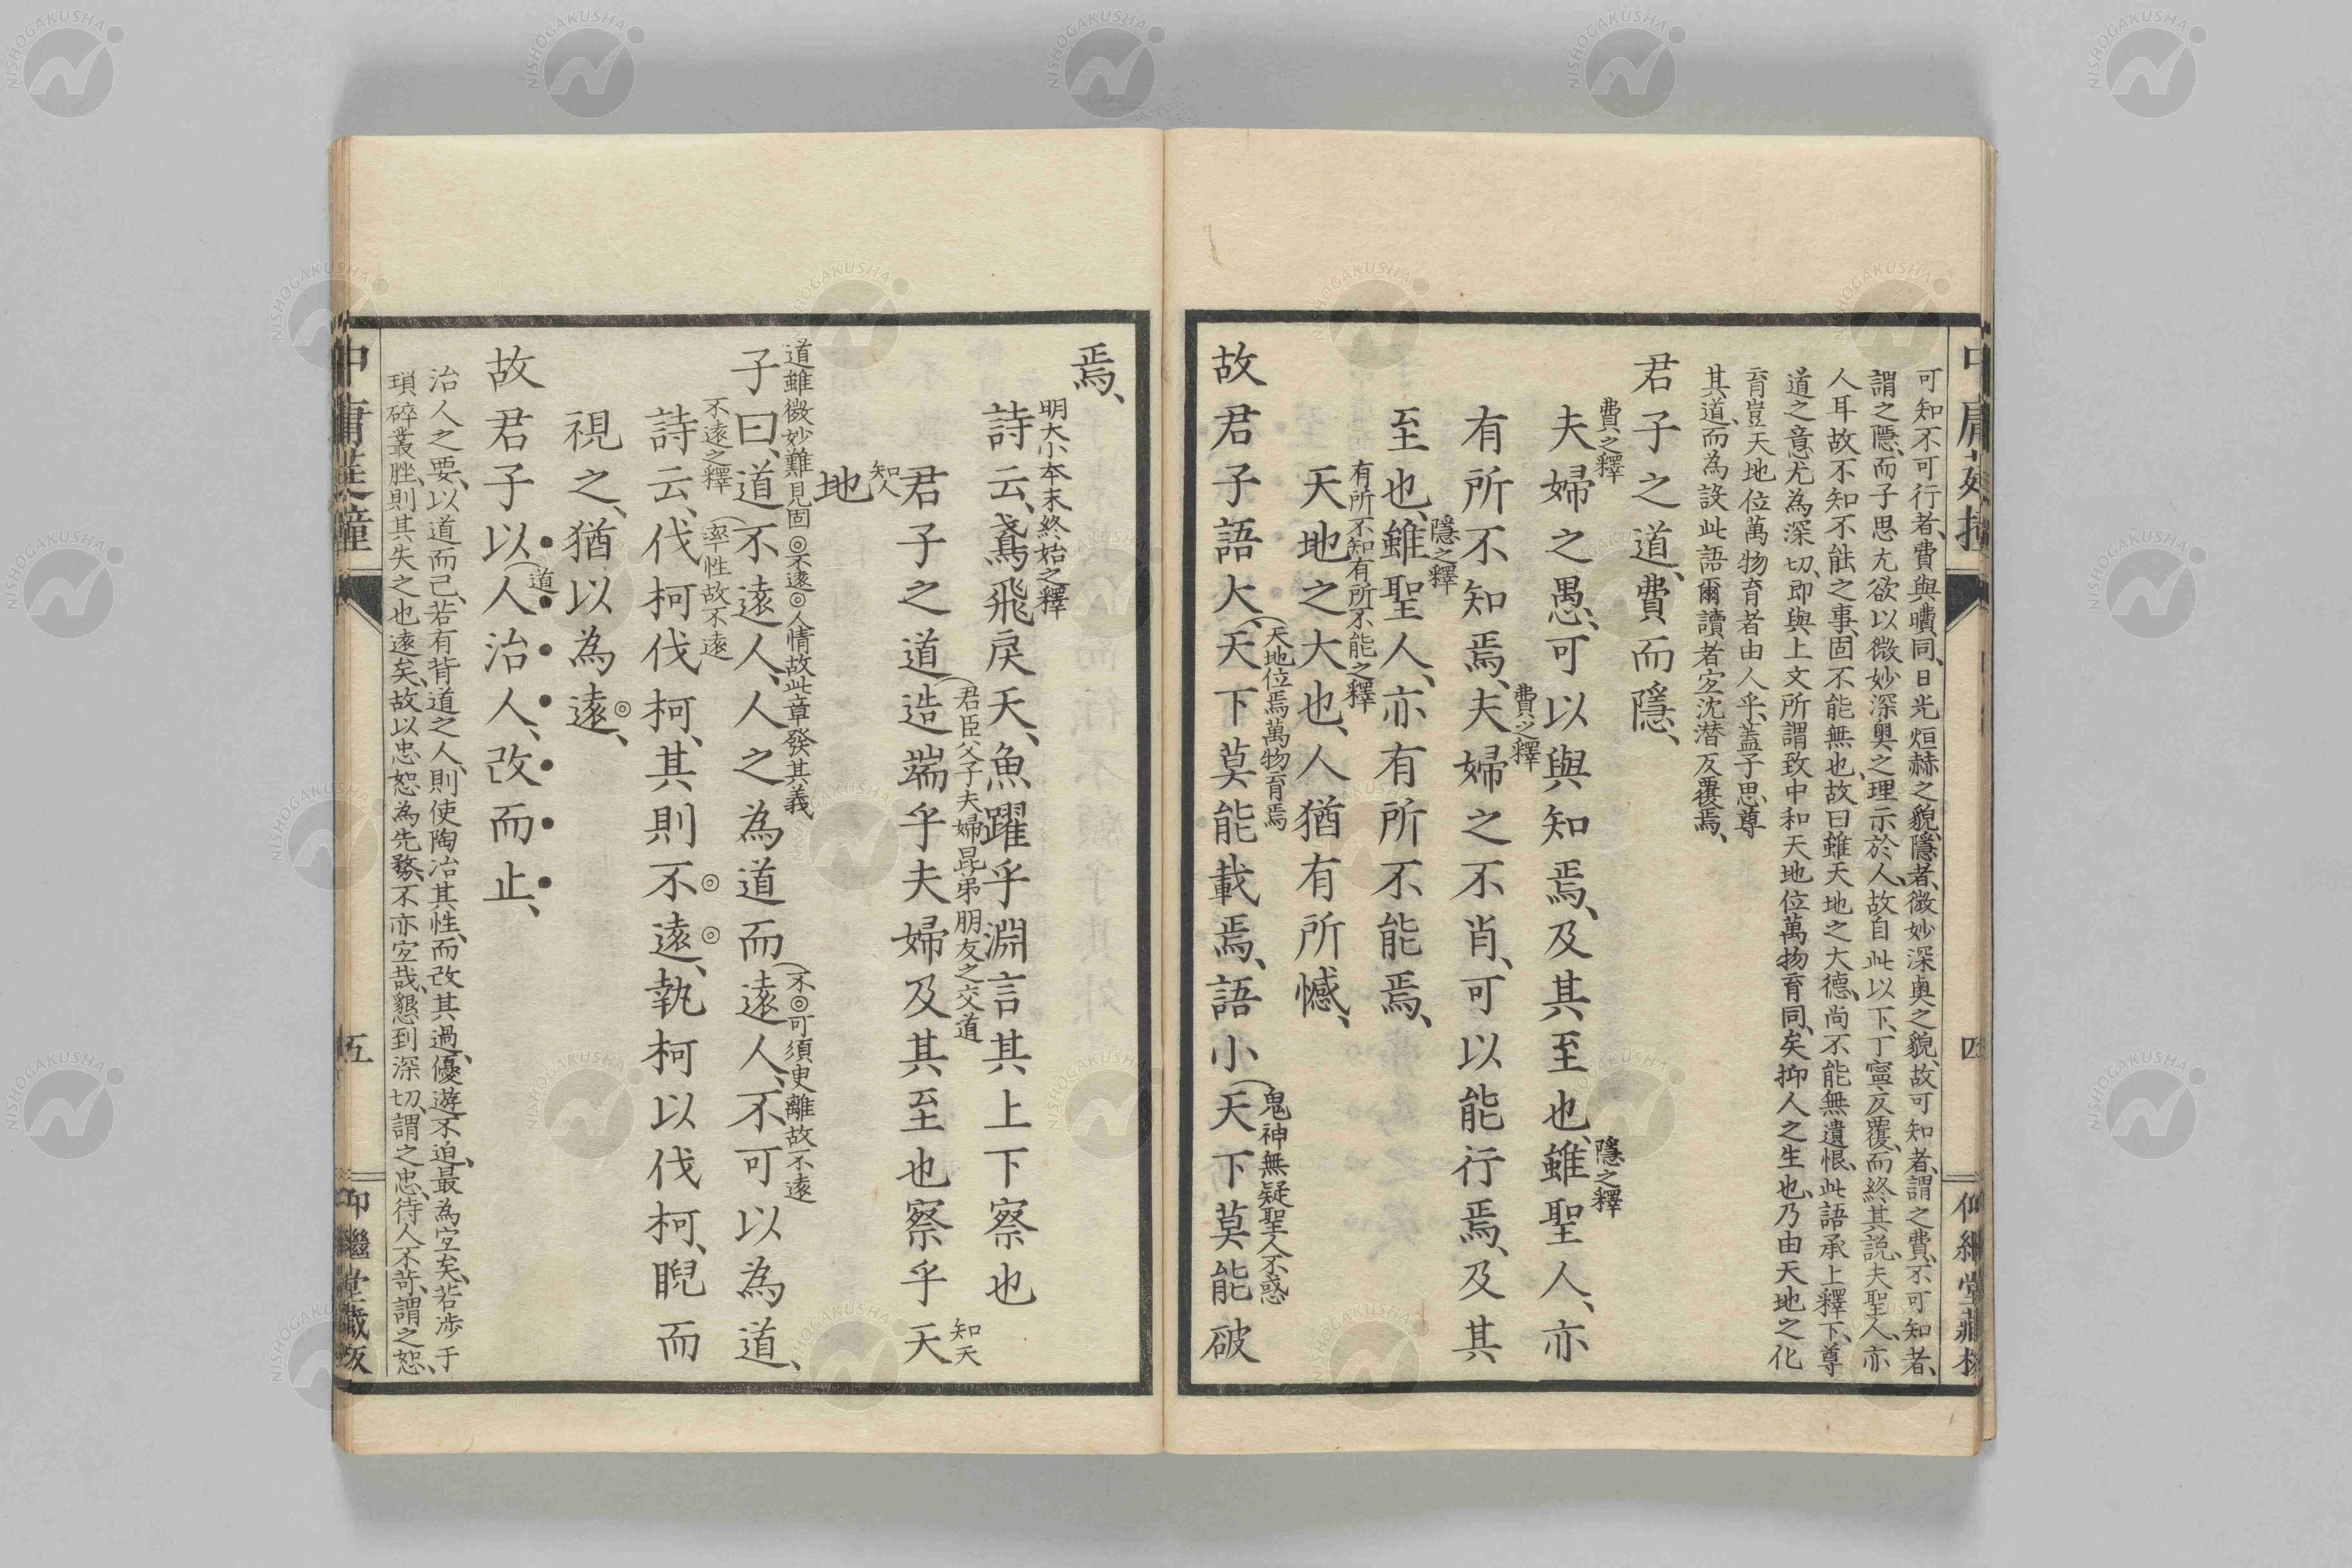 可知不可行者、費與曊同、日光烜赫之貌、隱者、微妙深奥之貌、故可知者、謂之費、不可知者、
謂之隱、而子思尤欲以微妙深奥之理示於人、故自此以下、丁寧反覆、而終其説、夫聖人、亦
人耳故不知不能之事、固不能無也、故曰雖天地之大德、尚不能無遺恨、此語承上釋下、尊
道之意尤為深切、即與上文所謂致中和天地位萬物育同、矣抑人之生也、乃由天地之化
育豈天地位萬物育者由人乎、蓋子思、尊
其道、而為設此語爾讀者宜沈潜反覆焉、
君子之道、費而隱、
費之釋
夫婦之愚、可以與知焉、及其至也、雖聖人、亦
隱之釋
有所不知焉、夫婦之不肖、可以能行焉、及其
費之釋
至也、雖聖人、亦有所不能焉、
隱之釋
天地之大也、人猶有所憾、
有所不知有所不能之釋
故君子語大、天下莫能載焉、語小天下莫能破
天地位焉萬物育焉
鬼神無疑聖人不惑
中庸
四
焉、
明大小本末終始之釋
詩云、鳶飛戾天、魚躍乎淵言其上下察也
君子之道造端乎夫婦及其至也察乎天
君臣父子夫婦昆弟朋友之交道
知天
地
知人
道雖微妙難見固◎不遠◎人情故此章發其義
子曰、道不遠人、人之為道而遠人、不可以為道、
不◎可須臾離故不遠
不遠之釋
率性故不遠
詩云、伐柯伐柯、其則不遠、執柯以伐柯、睨而
視之、猶以為遠、
故君子以人治人、改而止、
道
治人之要、以道而已、若有背道之人、則使陶冶其性、而改其過、優遊不迫、最為宜矣、若渉于
瑣碎叢脞、則其失之也遠矣、故以忠恕為先務、不亦宜哉、懇到深切、謂之忠、待人不苛、謂之恕、
中庸
五
仰繼堂藏板
NISHOGAKUSHA